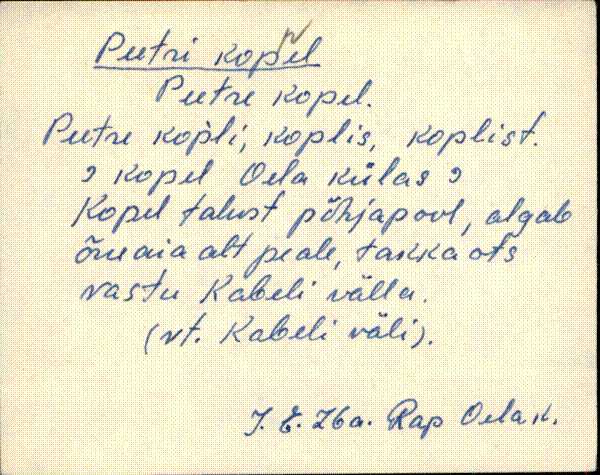 Peetri koppel
Peetre kopel.
Peetre kopli, koplis, koplist.
? kopel Oela külas ?
Kopel talust põhjapool, algab
õueaia alt peale, takka ots
vastu Kabeli välla.
(vt. Kabeli väli).
J. E. 26a. Rap Oela k.